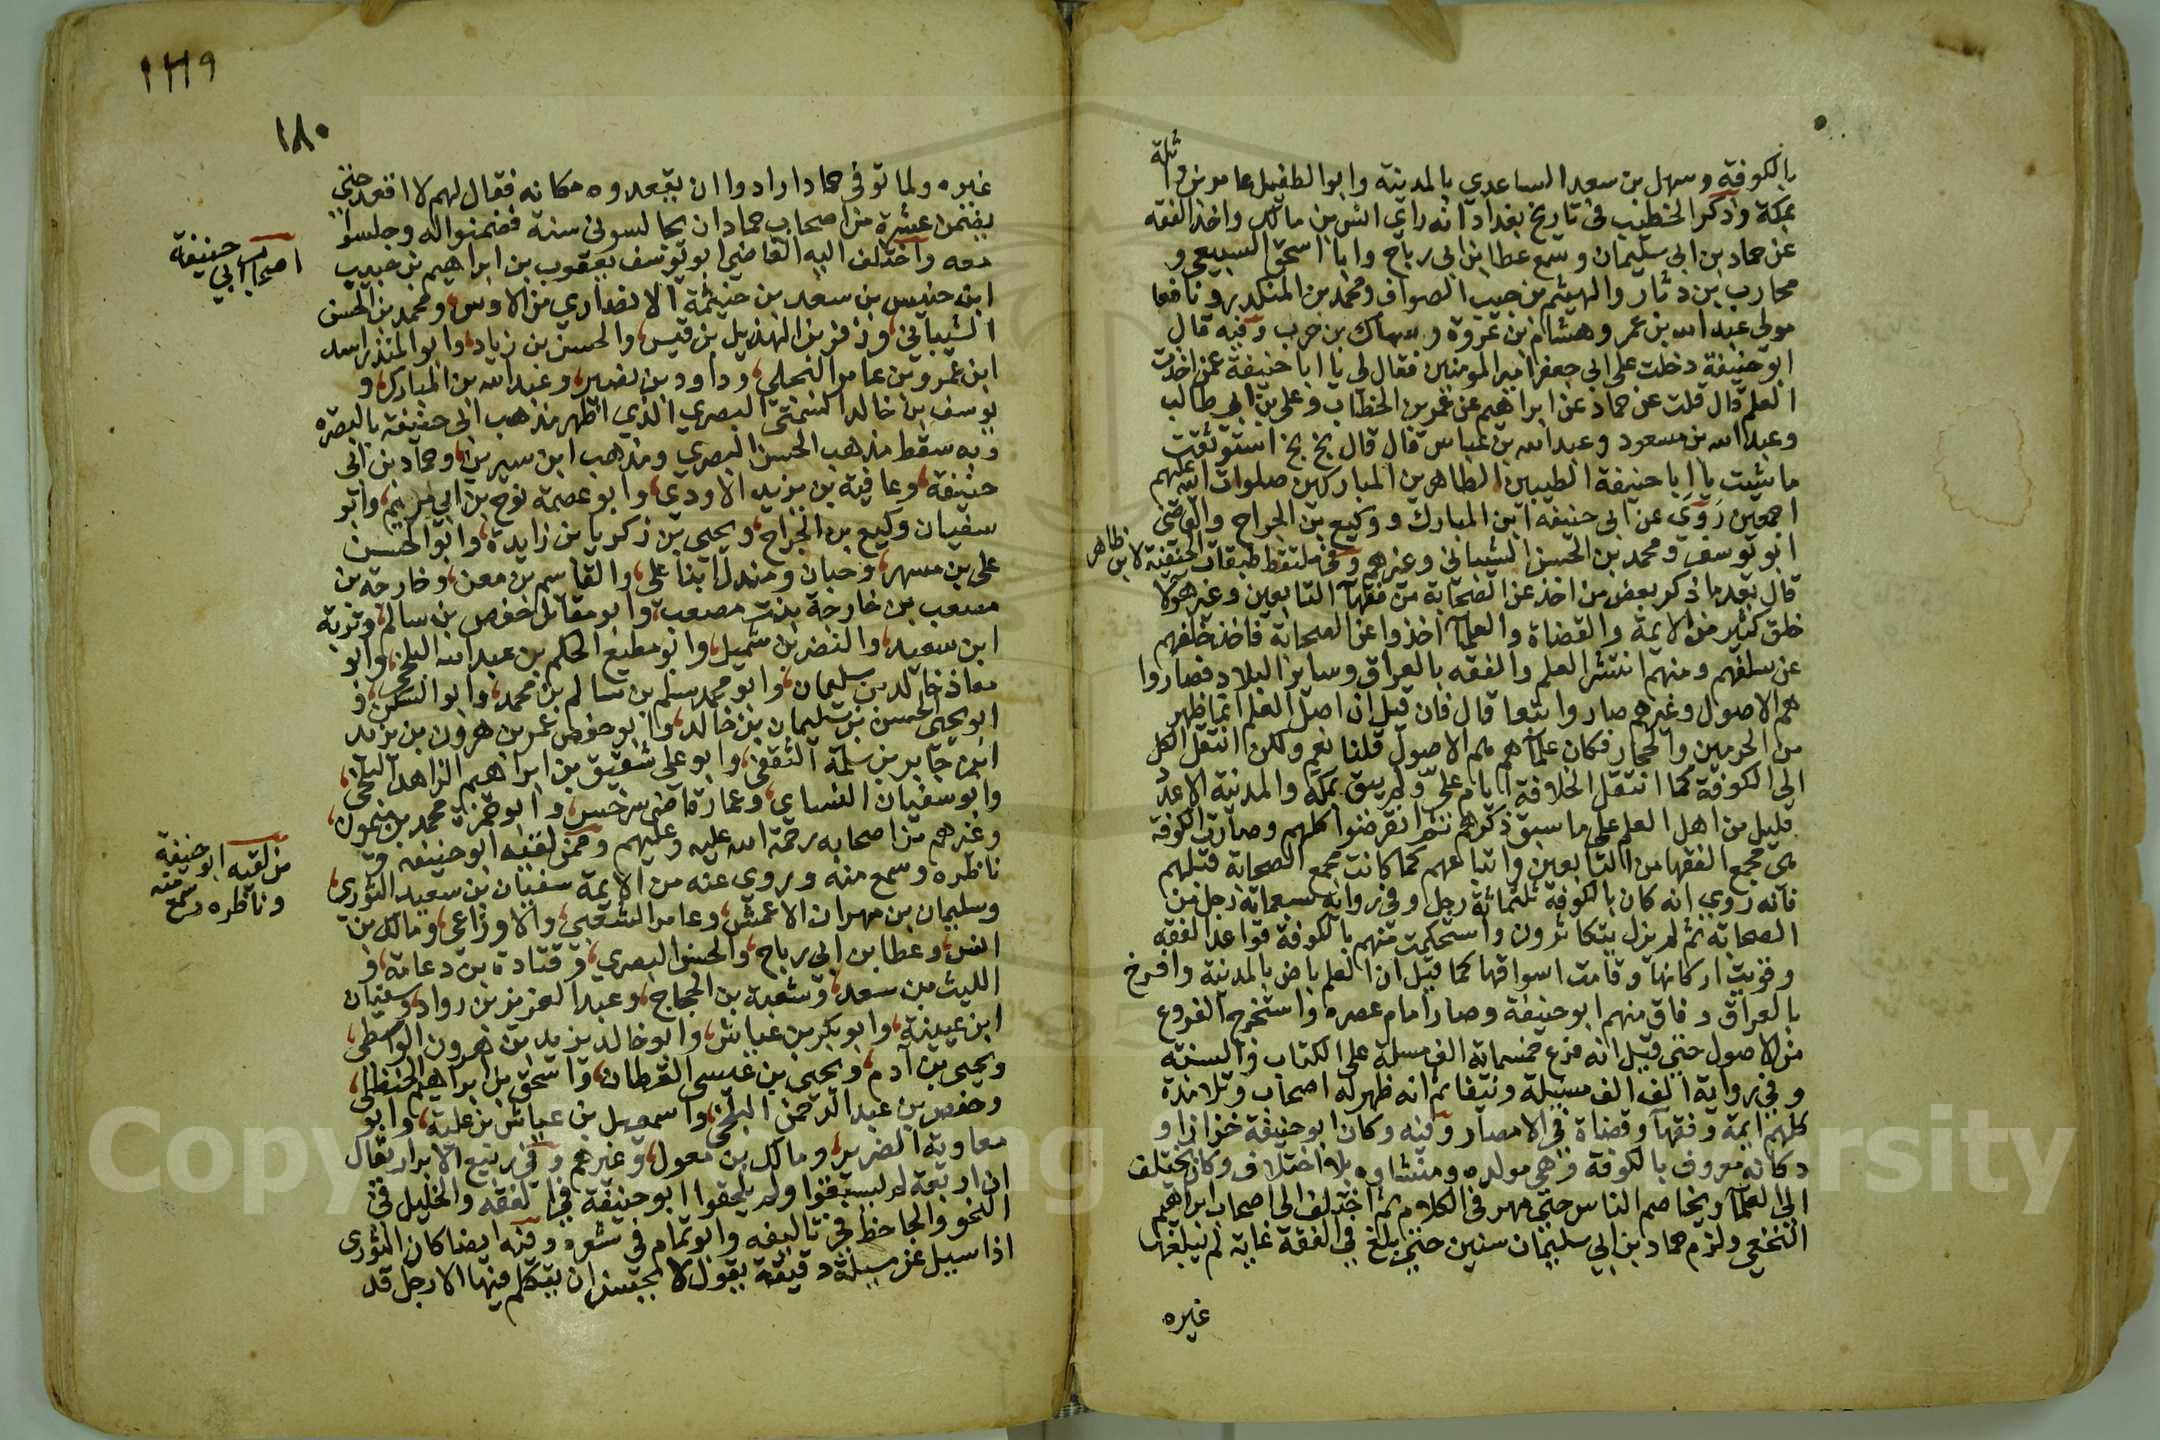 بالكوفة وسهل بن سعد الساعدي بالمدينة وابو الطفيل عامر بن واثلة
بمكة وذكر الخطيب في تاريخ بغداد انه راي انس بن مالك واخذ الفقه
عن حماد بن ابي سليمان وسمع عطا بن ابي رباح وابا اسحق السبيعي و
محارب بن دثار والهيثم بن حبيب الصواف ومحمد بن المنكدر ونافعا
مولى عبد الله بن عمر وهشام بن عروة وسماك بن حرب وفيه قال
ابو حنيفة دخلت على ابي جعفر امير المومنين فقال لي يا ابا حنيفة عمن اخذت
العلم قال قلت عن حماد عن ابراهيم عن عمر بن الخطاب وعلي بن ابي طالب
وعبد الله بن مسعود وعبد الله بن عباس قال قال بخ بخ استوثقت
ما شيت يا ابا حنيفة الطيبين الطاهرين المباركين صلوات الله عليهم
اجمعين روى عن ابي حنيفة ابن المبارك ووكيع بن الجراح والقاضي
ابو يوسف ومحمد بن الحسن الشيباني وغيرهم وفي ملتقط طبقات الحنفية لابن طاهر
قال بعد ما ذكر بعض من اخذ عن الصحابة من فقهآ التابعين وغير هولا
خلق كثير من الايمة والقضاة والعلمآ اخذوا عن الصحابة فاخذ خلفهم
عن سلفهم ومنهم انتشر العلم والفقه بالعراق وساير البلاد فصاروا
هم الاصول وغيرهم صاروا تبعا قال فان قيل ان اصل العلم انما ظهر
من الحرمين والحجاز فكان علمآهم هم الاصول قلنا نعم ولكن انتقل الكل
الى الكوفة كما انتقل الخلافة ايام علي ولم يبق بمكة والمدينة الا عدد
قليل من اهل العلم على ما سبق ذكرهم ثم انقرضوا كلهم وصارت الكوفة
هي مجمع الفقها من التابعين واتباعهم كما كانت مجمع الصحابة قبلهم
فانه روي انه كان بالكوفة ثلثمائة رجل وفي رواية سبعماية رجل من
الصحابة ثم لم يزل يتكاثرون واستحكمت منهم بالكوفة قواعد الفقه
وقويت اركانها وقامت اسواقها كما قيل ان العلم باض بالمدينة وافرخ
بالعراق وفاق منهم ابو حنيفة وصار امام عصره واستخرج الفروع
من الاصول حتى قيل انه فرع خمسماية الف مسلة على الكتاب والسنة
وفي رواية الف الف مسيلة ونيفا ثم انه ظهر له اصحاب وتلامذة
كلهم ايمة وفقهآ وقضاة في الامصار وفيه وكان ابو حنيفة خزازا و
دكانه معروف بالكوفة وهي مولده ومنشاوه بلا اختلاف وكان يختلف
الى العلمآ ويخاصم الناس حتى مهر في الكلام ثم اختلف الى اصحاب ابراهيم
النخعي ولزم حماد بن ابي سليمان سنين حتى بلغ في الفقة غاية لم يبلغها
غيره
١٢٦٩
١٨٠
غيره ولما توفي حماد ارادوا ان يقعدوه مكانه فقال لهم لا اقعد حتى
يضمن عشرة من اصحاب حماد ان يجالسوني سنة فضمنوا له وجلسوا
معه واختلف اليه القاضي ابو يوسف يعقوب بن ابراهيم بن حبيب
ابن خنيس بن سعد بن حيثمة الانصاري من الاوس ومحمد بن الحسن
الشيباني وزفر بن الهذيل بن قيس والحسن بن زياد وابو المنذر اسد
ابن عمرو بن عامر البجلي وداود بن نصير وعبد الله بن المبارك و
يوسف بن خالد السمتي البصري الذي اظهر مذهب ابي حنيفة بالبصره
وبه سقط مذهب الحسن البصري ومذهب ابن سيرين وحماد بن ابي
حنيفة وعافية بن يزيد الاودي وابو عصمة نوح بن ابي مريم وابو
سفيان وكيع بن الجراح ويحيى بن زكريا بن زايدة وابو الحسن
علي بن مسهر وحبان ومندل ابنا علي والقاسم بن معن وخارجة بن
مصعب بن خارجة بنت مصعب وابو مقاتل حفص بن سالم وتوبة
ابن سعيد والنضر بن شميل وابو مطيع الحكم بن عبد الله البلخي وابو
معاذ خالد بن سليمان وابو محمد سلم بن سالم بن محمد وابو السكن و
ابو يحيى الحسن بن سليمان بن خالد وابو حفص عمر بن هرون بن يزيد
ابن جابر بن سلمة الثقفي وابو علي شقيق بن ابراهيم الزاهد البلخي
وابو سفيان النساي وعمار قاضي سرخس وابو حمزة محمد بن ميمون
وغيرهم من اصحابه رحمة الله عليه وعليهم وممن لقيه ابو حنيفة و
ناظره وسمع منه وروى عنه من الايمة سفيان بن سعيد الثوري
وسليمان بن مهران الاعمش وعامر الشعبي والاوزاعي ومالك بن
انس وعطا بن ابي رباح والحسن البصري وقتادة بن دعامة و
الليث بن سعد وشعبة بن الحجاج وعبد العزيز بن رواد وسفيان
ابن عيينة وابو بكر بن عياش وابو خالد يزيد بن هرون الواسطي
ويحيى بن آدم ويحيى بن عيسى القطان واسحق بن ابراهيم الحنظلي
وحفص بن عبد الرحمن البلخي واسمعيل بن عياش بن علية وابو
معاوية الضرير ومالك بن مغول وغيرهم وفي ربيع الابرار يقال
ان اربعة لم يسبقوا ولم يلحقوا ابو حنيفة في الفقه والخليل في
النحو والجاحظ في تاليفه وابو تمام في شعره وفيه ايضا كان الثوري
اذا سيل عن مسيلة دقيقة يقول لا يحسن ان يتكلم فيها الا رجل قد
اصحاب ابي حنيفة
من لقيه ابو حنيفة
وناظره وسمع منه
Copy
ng
rsity